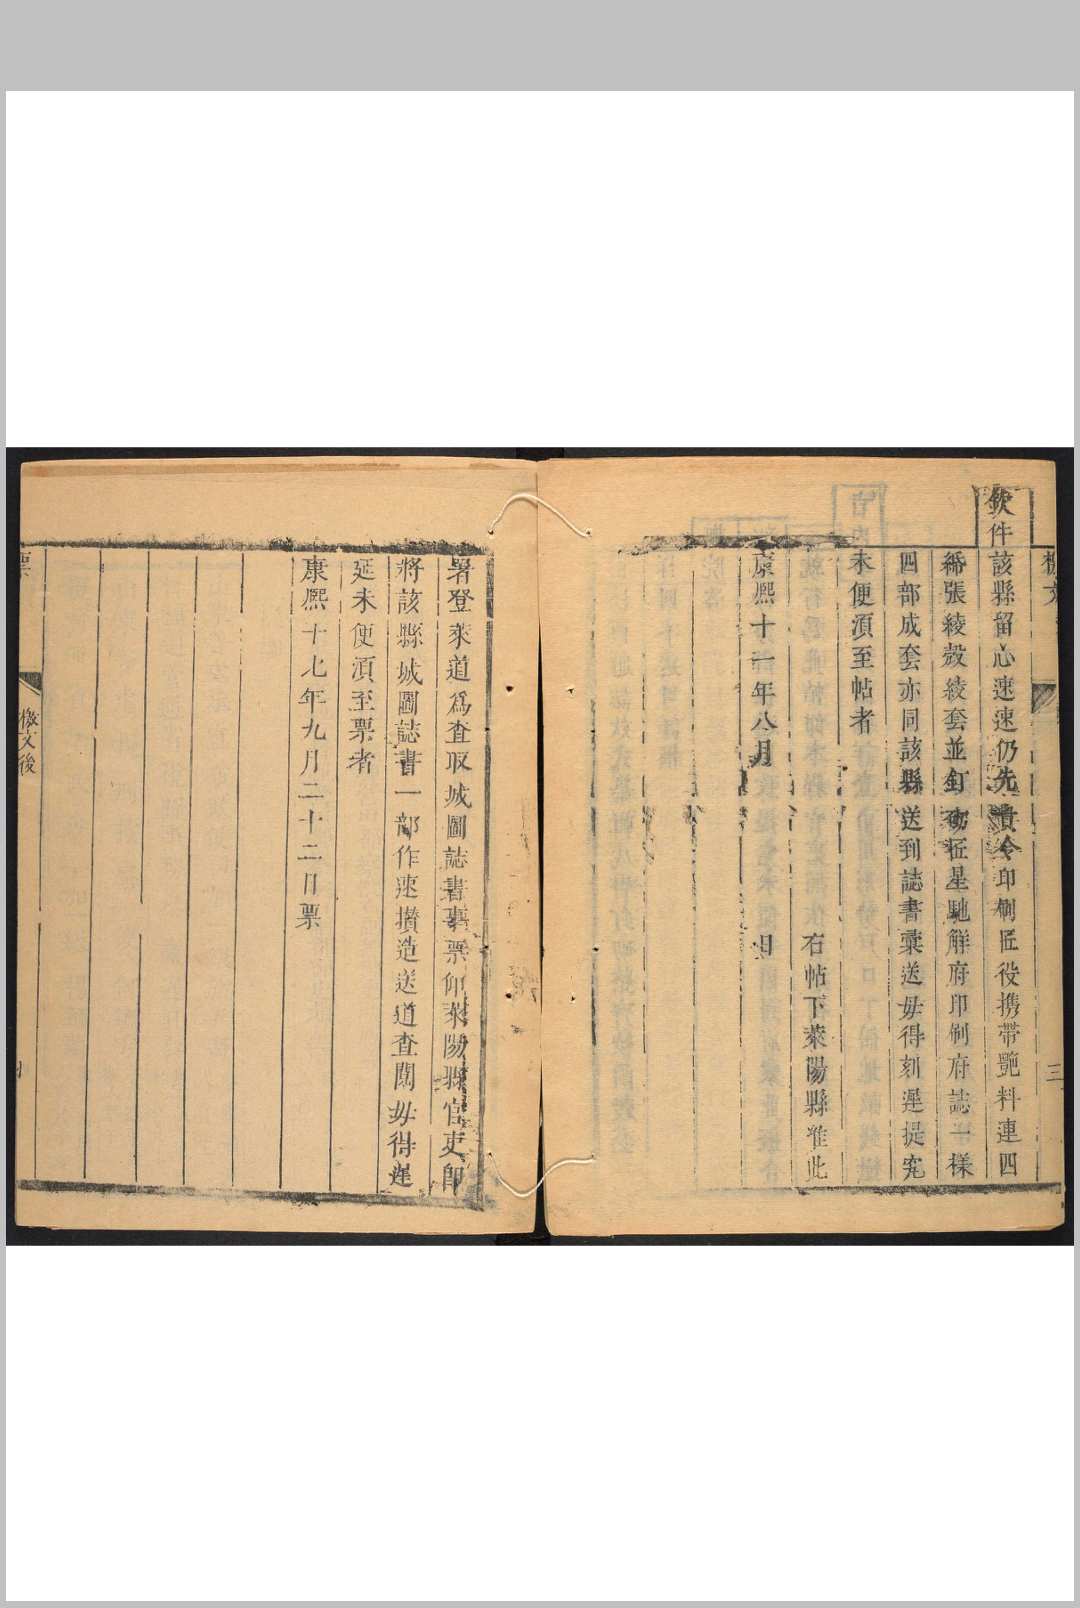 檄文
三
欽件該縣留心速速仍先責令印刷匠役携帶艷料連四
番張綾殼綾套並釘
星馳觧府印刷府誌一樣
四部成套亦同該縣送到誌書彙送毋得刻遲提究
未便湏至帖者
右帖下萊陽縣准此
康熈十一年八月 日
署登萊道爲查取城圖誌書事票仰萊陽縣官吏即
將該縣城圖誌書一部作速攅造送道查閱毋得遲
延未便湏至票者
康熈十七年九月二十二日票
票
檄文後